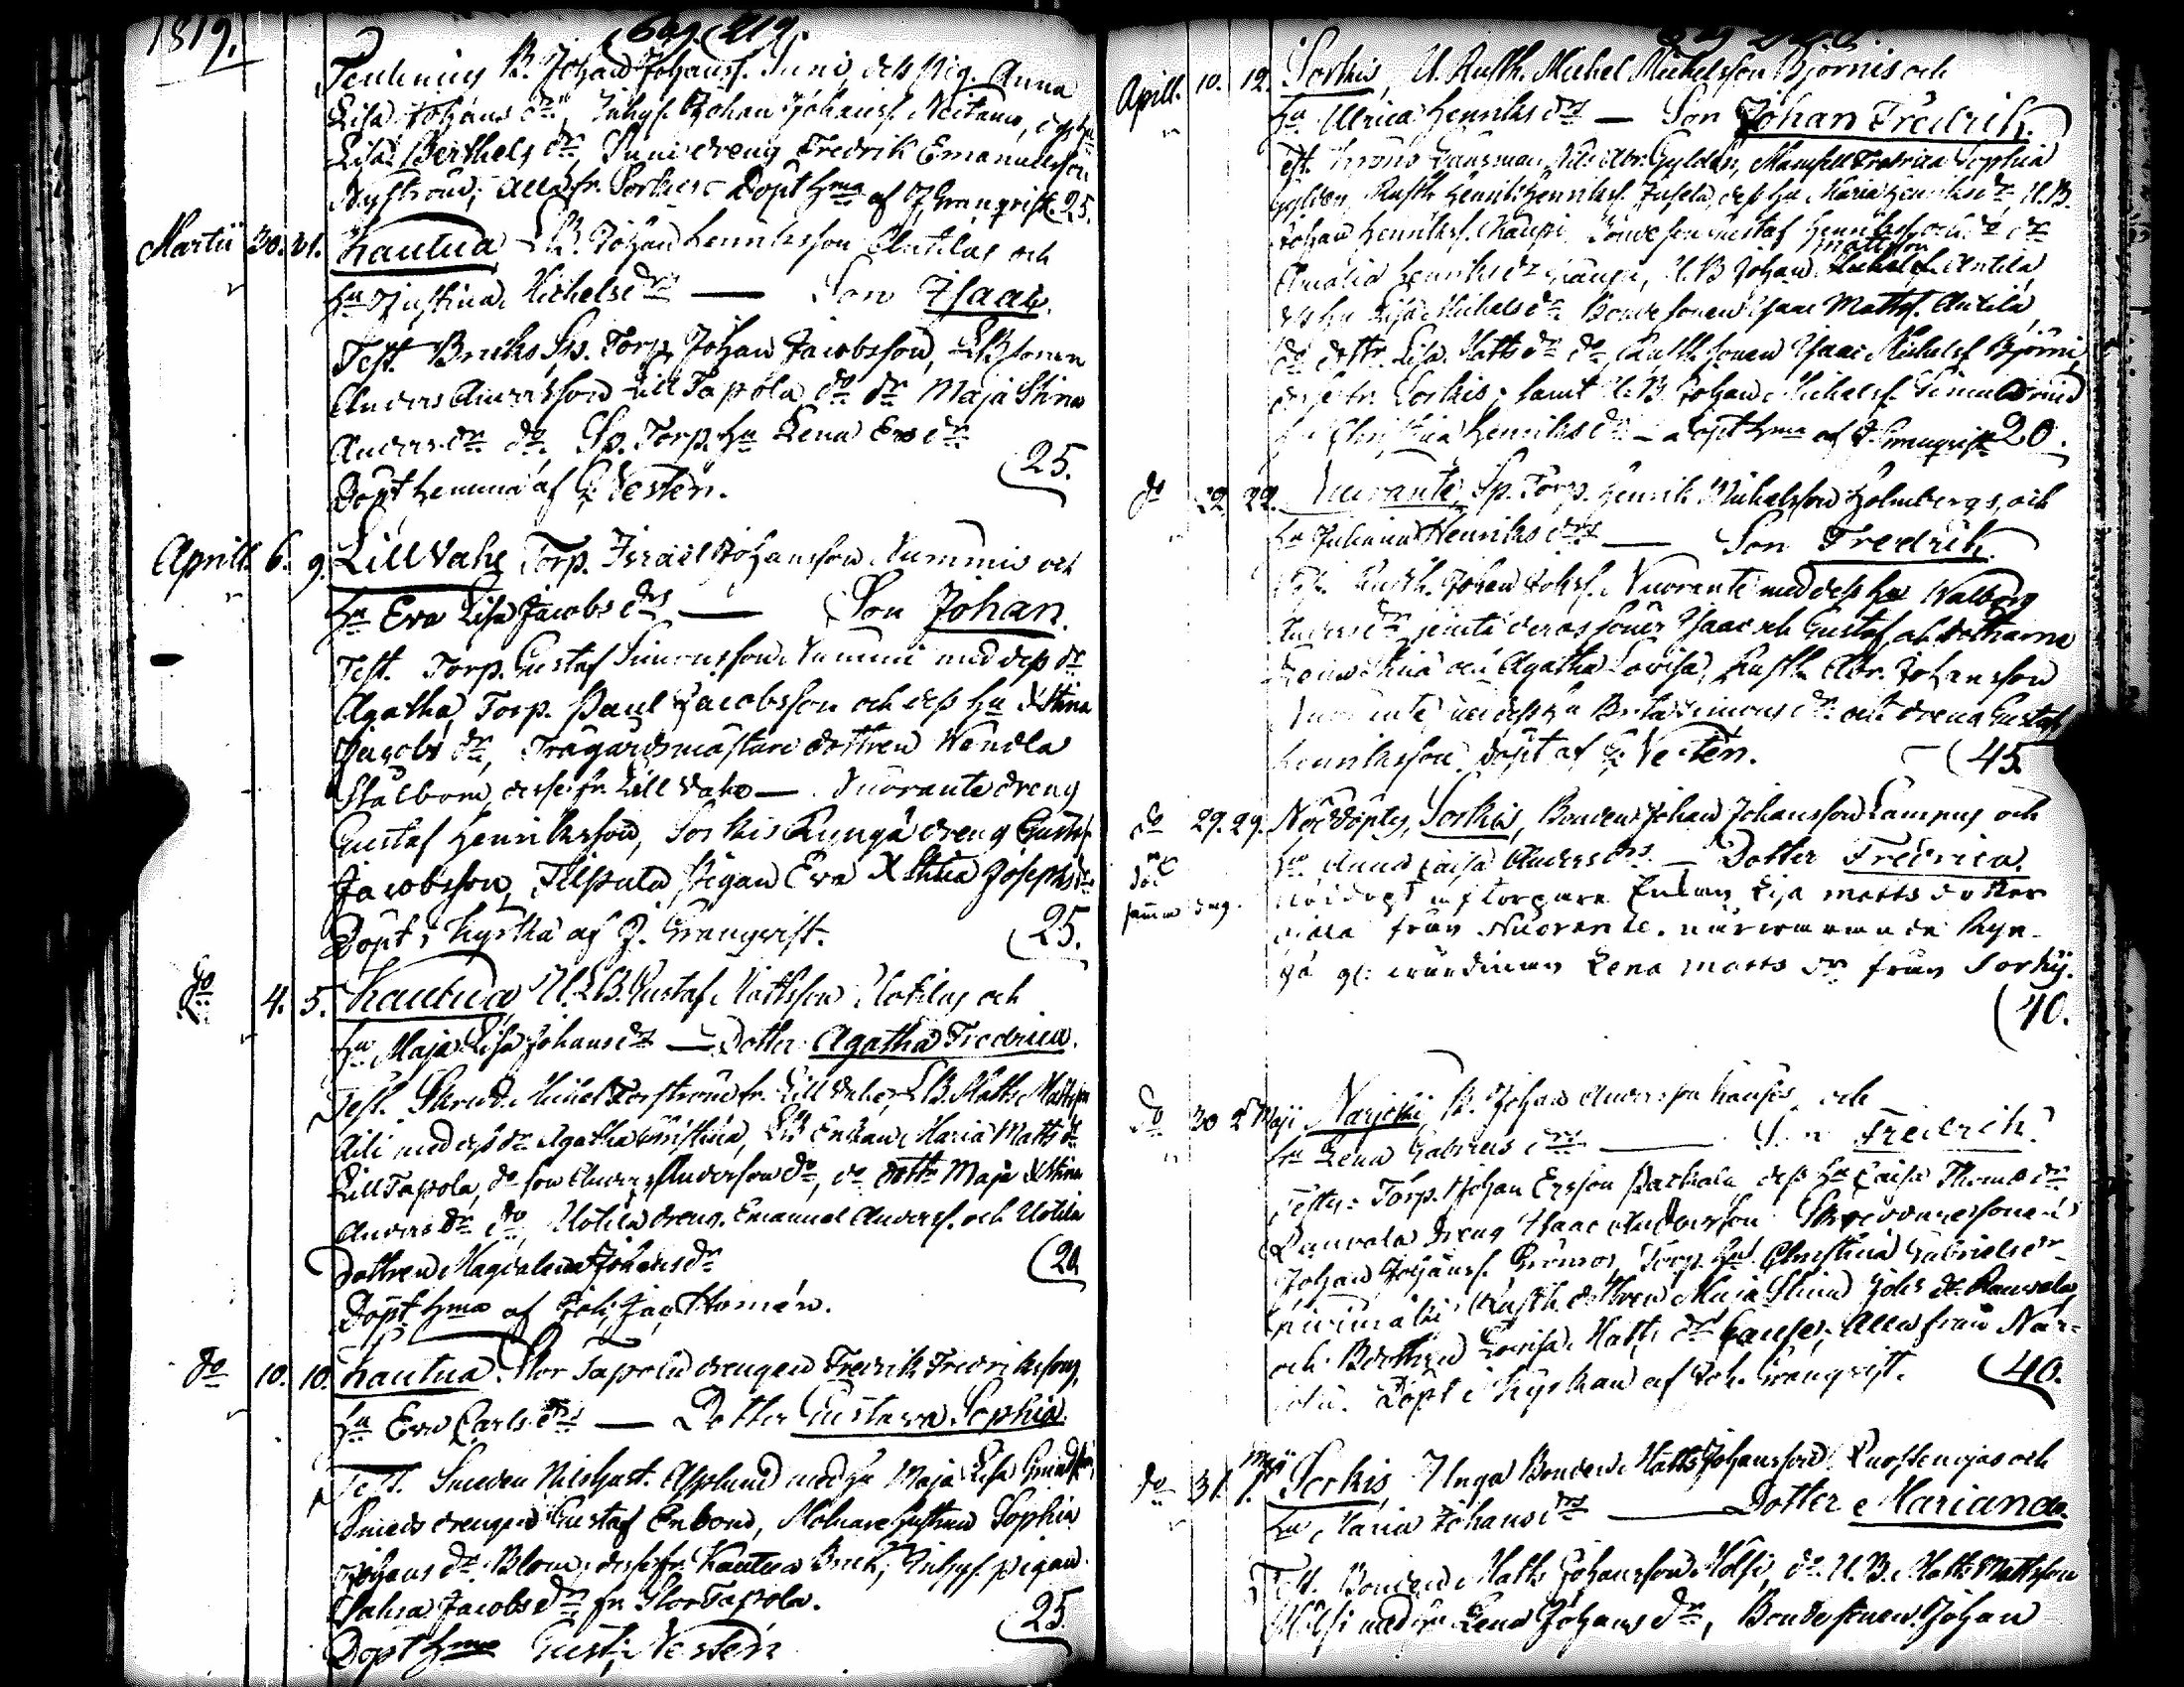 1819.
Johan Johansf. Suni, dess Pig. Anna
Lisa Johans dr, Inhys. Johan Johansf.
Lisa Berthels dr, Suni dreng Fredrik Emanuelsson
Nyström; alla fr. Sorkis Döpt hma af J. Granqvist 25.
Martii 30. 31. Kautua LB. Johan Henriksson Anttilas och
hu Justina Michels drs — Son Isaac.
Test. Bruks Sp. Torp. Johan Jacobsson, LB sonen
Anders Andersson Lill Tapola do dr Maja Stina
Anders dr do. Sp. Torp. hu Lena Ers dr
Döpt hemma af G. Nestén. (25.
Aprill. 6. 9. Lill Vahe Torp. Israel Johansson Nummis och
hu Eva Lisa Jacobs drs — Son Johan.
Test. Torp. Gustaf Simonsson Nummi med dess dr
Agatha, Torp. Paul Jacobsson och dess hu Xstina
Jacobs dr, Trägårdsmästare dottren Wendla
Stålbom, desse fr. Lill Vahe — Nuorante dreng
Gustaf Henriksson, Sorkis Runga dreng Gustaf
Jacobsson, pigan Eva Xstina Josephs dr
Döpt i Kyrka af J. Granqvist. (25.
do 4. 5. Kautua, U.LB. Gustaf Mattsson Uotilas och
hu Maja Lisa Johans drs — Dotter Agatha Fredrica.
Test. Skredd. Michel Torström fr. Lill Vahe, LB. Matts Mattsson
Aili med dess dr Agatha Christina, LB Enkan Maria Matts dr
Lill Tapola, do son Anders Andersson do, do dottr Maja Xstina
Anders dr do, Uotila dreng. Emanuel Andersf. och Uotila
dottren Magdalena Johans dr (20
Döpt hma af Joh. Jac. Homén.
do 10. 10. Kautua. Stor Tapola drengen Fredrik Fredriksson,
hu Eva Carls drs — Dotter Gustava Sophia.
Test. Smeden Asplund med hu Maja Lisa
Smeds drengen Gustaf Enbom, Molnare hustrun Sophia
Johans dr Blom, desse fr Kautua Bruk, Inhys. pigan
Jacobs dr fr Stor Tapola. (25
Döpt hma Gust. Nestén
Aprill. 10. 12. Sorkis, U. Rusth. Michel Michelsson Björnis och
hu Ulrica Henriks drs — Son Johan Fredrik.
Test. Abr. Gyldén, Mamsell Fredrica Sophia
Gyldén, Rusth. Henrik Henriksf. dess hu Maria Henriks dr U.B.
Johan Henriksf. Kaupi, Bonde son Gustaf Henriksf. och do dr
Amalia Henriks dr Kaupi, U.B Johan Mattsson Anttila,
dess hu Lisa Michels dr Bonde sonen Isaac Mattsf. Anttila,
do dottr. Lisa Matts dr do, Rusth. sonen Isaac Michelsf Björni,
desse fr. Sorkis; samt U.B. Johan Michelsf.
hu Christina Henriks dr — Döpt hma af J. Granqvist 20.
do 22 22. Nuorante, Sp. Torp. Henrik Michelsson Holmbergs, och
hu Juliana Henriks drs — Son Fredrik.
Rusth. Johan Johsf. Nuoranti med dess hu Walborg
Anders dr jemte deras söner Isaac och Gustaf, och döttrarne
Stina och Agatha Lovisa, Rusth. Abr. Johansson
Nuorante med dess hu Brita Simons dr och dreng Gustaf
Henriksson. Döpt af G. Nestén. — (45.
do 29. 29. Nöddöpts, Sorkis, Bonden Johan Johansson Lamnus och
död samma dag. hu Anna Caisa Anders drs — Dotter Fredrica.
nöddopt af torpare Enkan Lisa matts dotter
från Nuorante. närwarande Ryn-
gö gl. wärdinnan Lena matts dr från Sorkis.
(40.
do 30 2 Maji Narjoki, B. Johan Andersson Kauses och
hu Lena Gabriels drs — Son Fredrik.
Testes: Torp. Johan Ersson dess hu Caisa Thomæ dr
Rauvola dreng Isaac Andersson Skreddaresonen
Johan Johansf. Grönroos, Torp. hu Christina Gabriels dr
Rusth. dottren Maja Stina Johs dr Rauvola,
och B dottren Lovisa Matts dr Kause; alla från Nar-
joki. Döpt i Kyrkan af Joh. Granqvist. (40.
do 31. Maji 1. Sorkis, Unga Bonden Matts Johansson och
hu Maria Johans drs — Dotter Mariana.
Test. Bonden Matts Johansson Hölsi, do U.B. Matts Mattsson
Hölsi med hu Lena Johans dr, Bonde sonen Johan